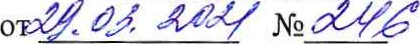 от 29.03.2021 № 246